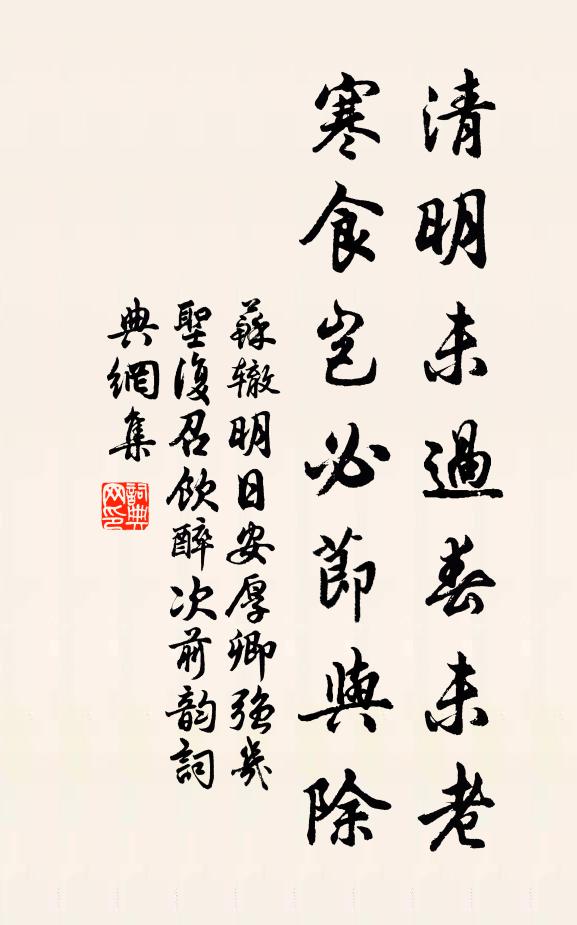 清明未過春未老
寒食豈必節與除
蘇轍明日安厚卿強幾
聖復召飲醉次前韵詞
典網集
詞典
网印